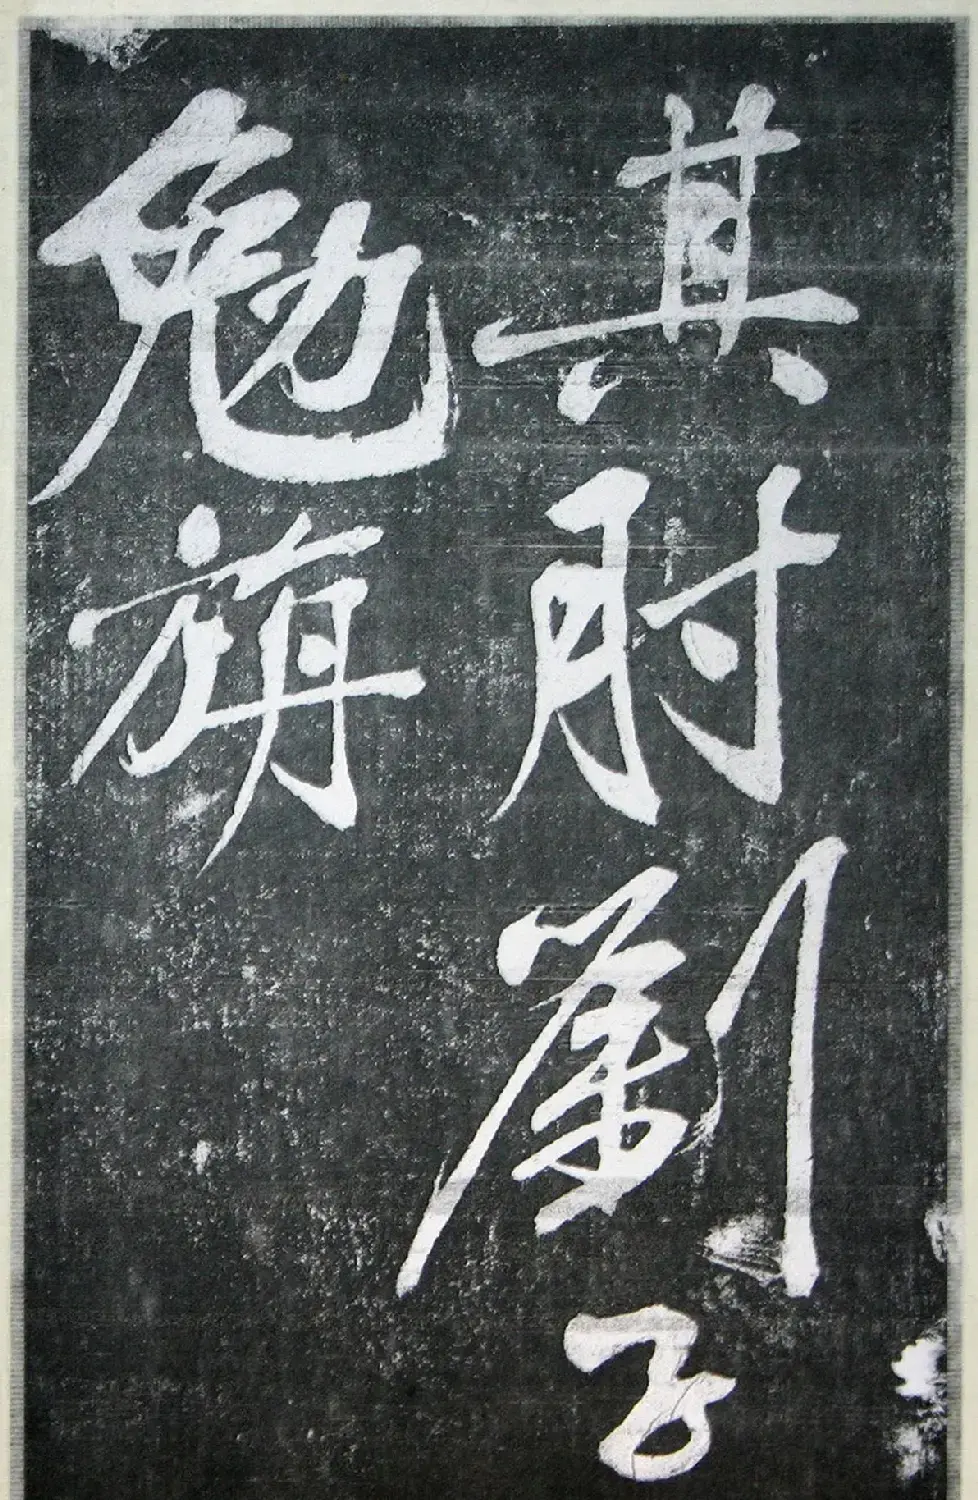 其肘劉子
勉旃